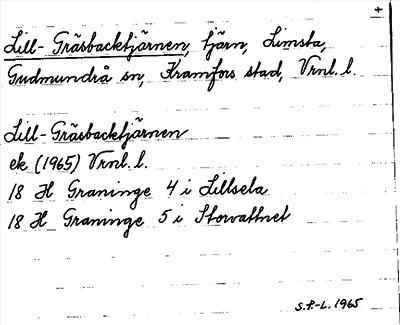 +
Lill-Gräsbacktjärnen, tjärn, Limsta,
Gudmundrå sn, Kramfors stad, Vrnl. l.
Lill-Gräsbacktjärnen
ek (1965) Vrnl. l.
18 H Graninge 4 i Lillsela
18 H Graninge 5 i Storvattnet
S.P.-L. 1965